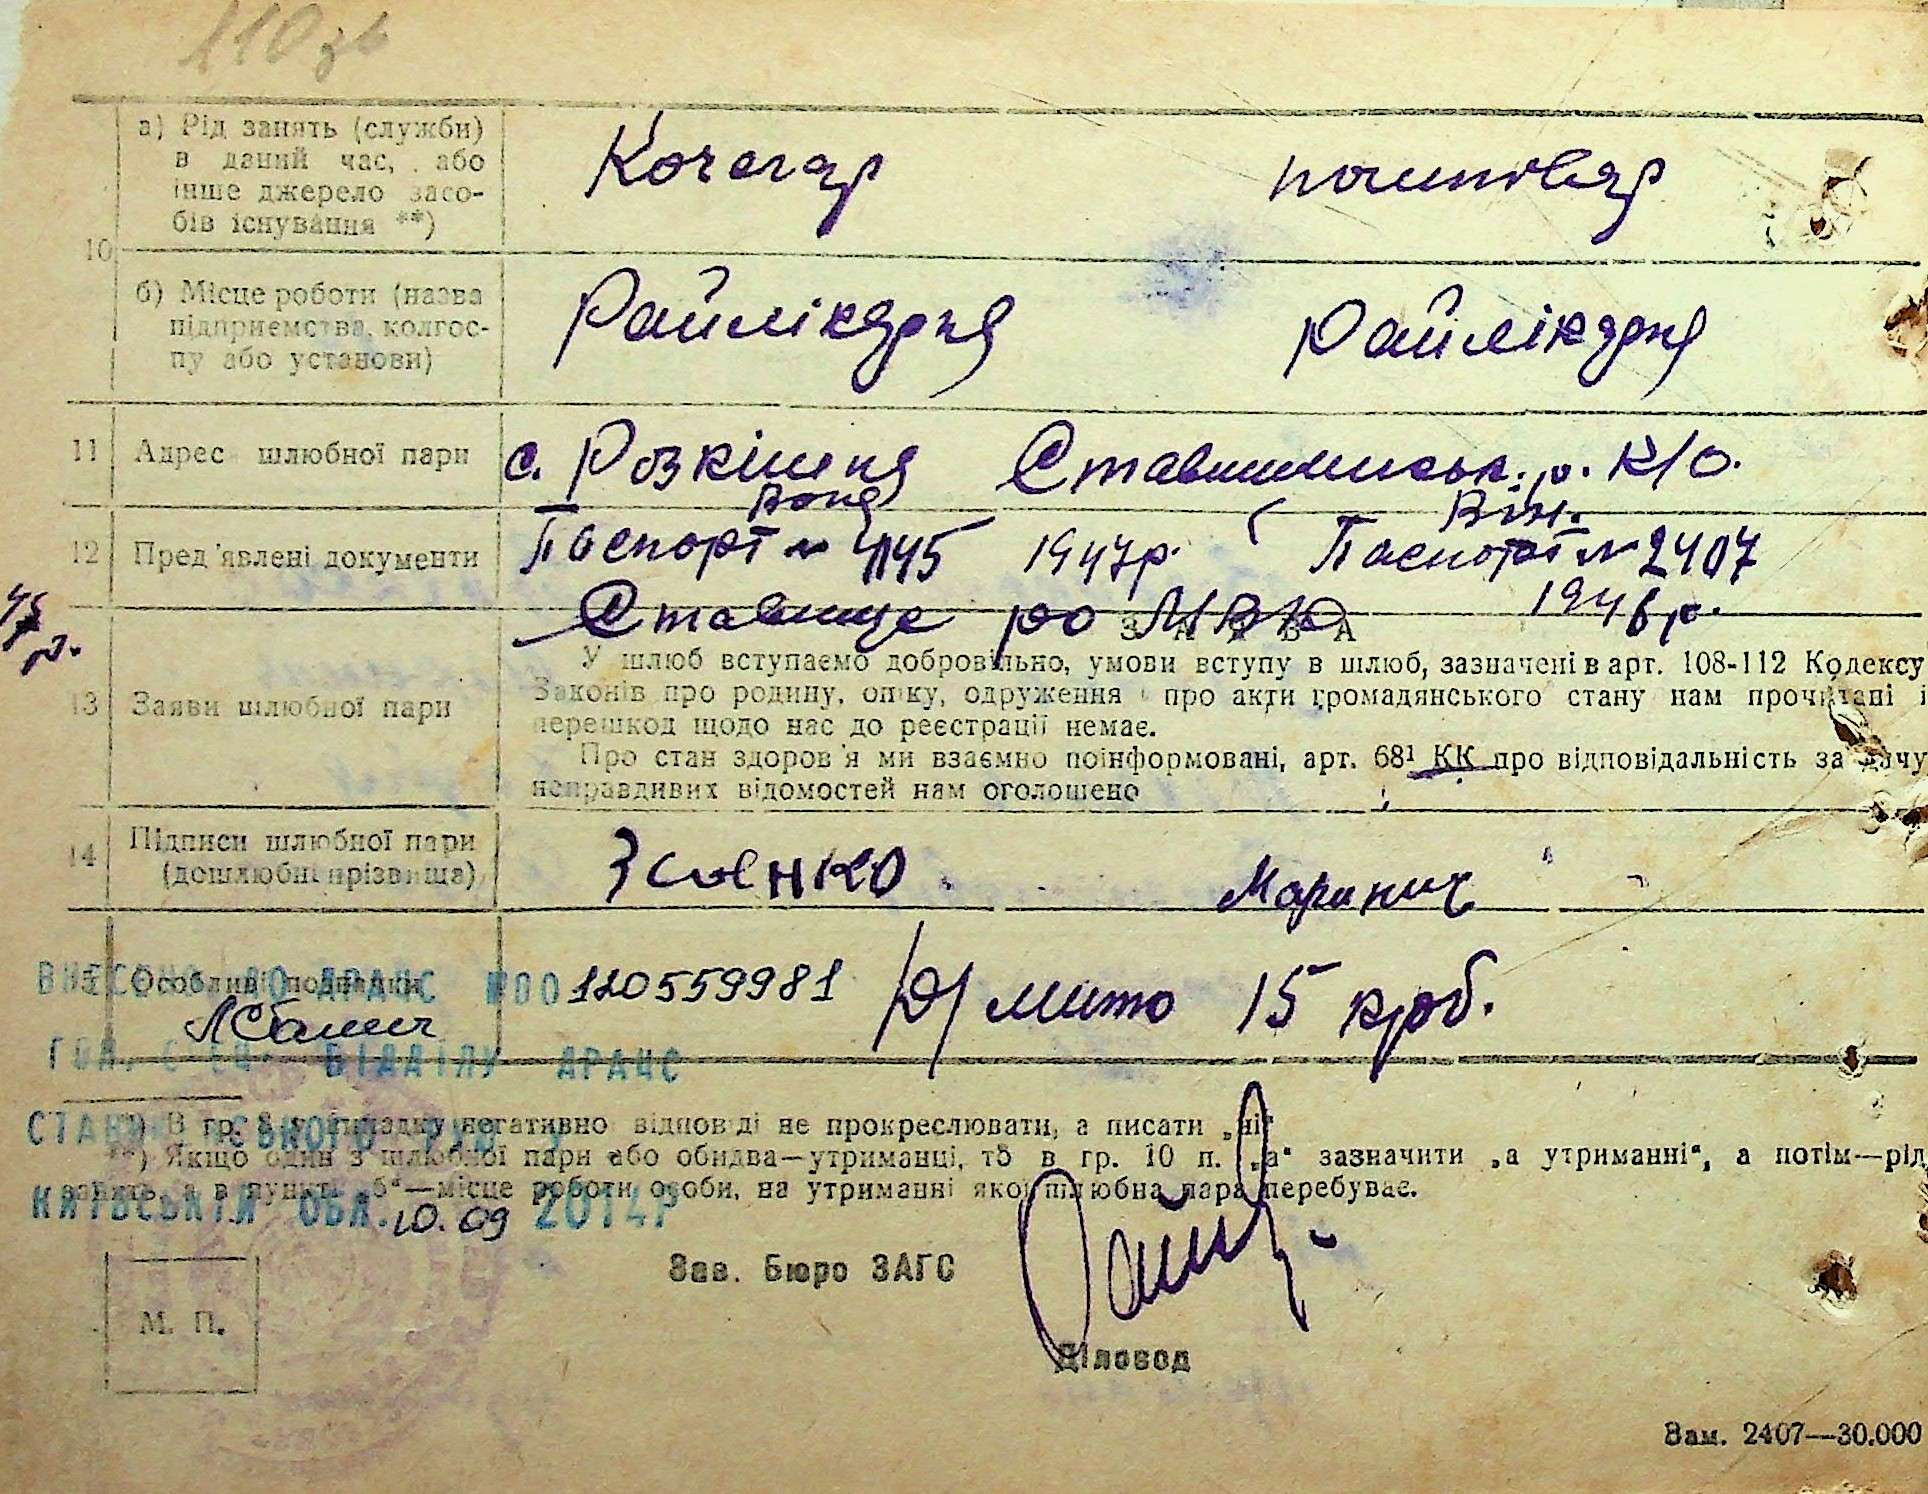 110 зв
а) Рід занять (служби) в даний час, або інше джерело засобів існування **)
Кочегар
поштовяр
10
б) Місце роботи (назва підприємства, колгоспу або установи)
Райлікарня
Райлікарня
11 Адрес шлюбної пари
с. Розкішна Ставищинськ. р. К/О.
Вона
Він.
12 Пред'явлені документи
Паспорт № 4145 1947р. Паспорт № 2407
Ставище ро МВЮ 1946 р.
ЗАЯВА
13 Заяви шлюбної пари
У шлюб вступаємо добровільно, умови вступу в шлюб, зазначені в арт. 108-112 Кодексу
Законів про родину, опіку, одруження і про акти громадянського стану нам прочитані і
перешкод щодо нас до реєстрації немає.
Про стан здоров'я ми взаємно поінформовані, арт. 68¹ КК про відповідальність за дачу
неправдивих відомостей нам оголошено
14 Підписи шлюбної пари
(дошлюбні прізвища)
Маринич
Особливі
ВНЕСЕНО ДО ДРАЦС №00120559981
мито 15 крб.
ВІДДІЛУ ДРАЦС
*) В гр. 8 у випадку негативно відповіді не прокреслювати, а писати „ні"
**) Якщо один з шлюбної пари або обидва—утриманці, то в гр. 10 п. „а" зазначити „а утриманні", а потім—рід
занять, а в пункті „б"—місце роботи особи, на утриманні якої шлюбна пара перебуває.
КИЇВСЬКІЙ ОБЛ. 10.09 2014р
Зав. Бюро ЗАГС
М. П.
Діловод
Зам. 2407—30.000